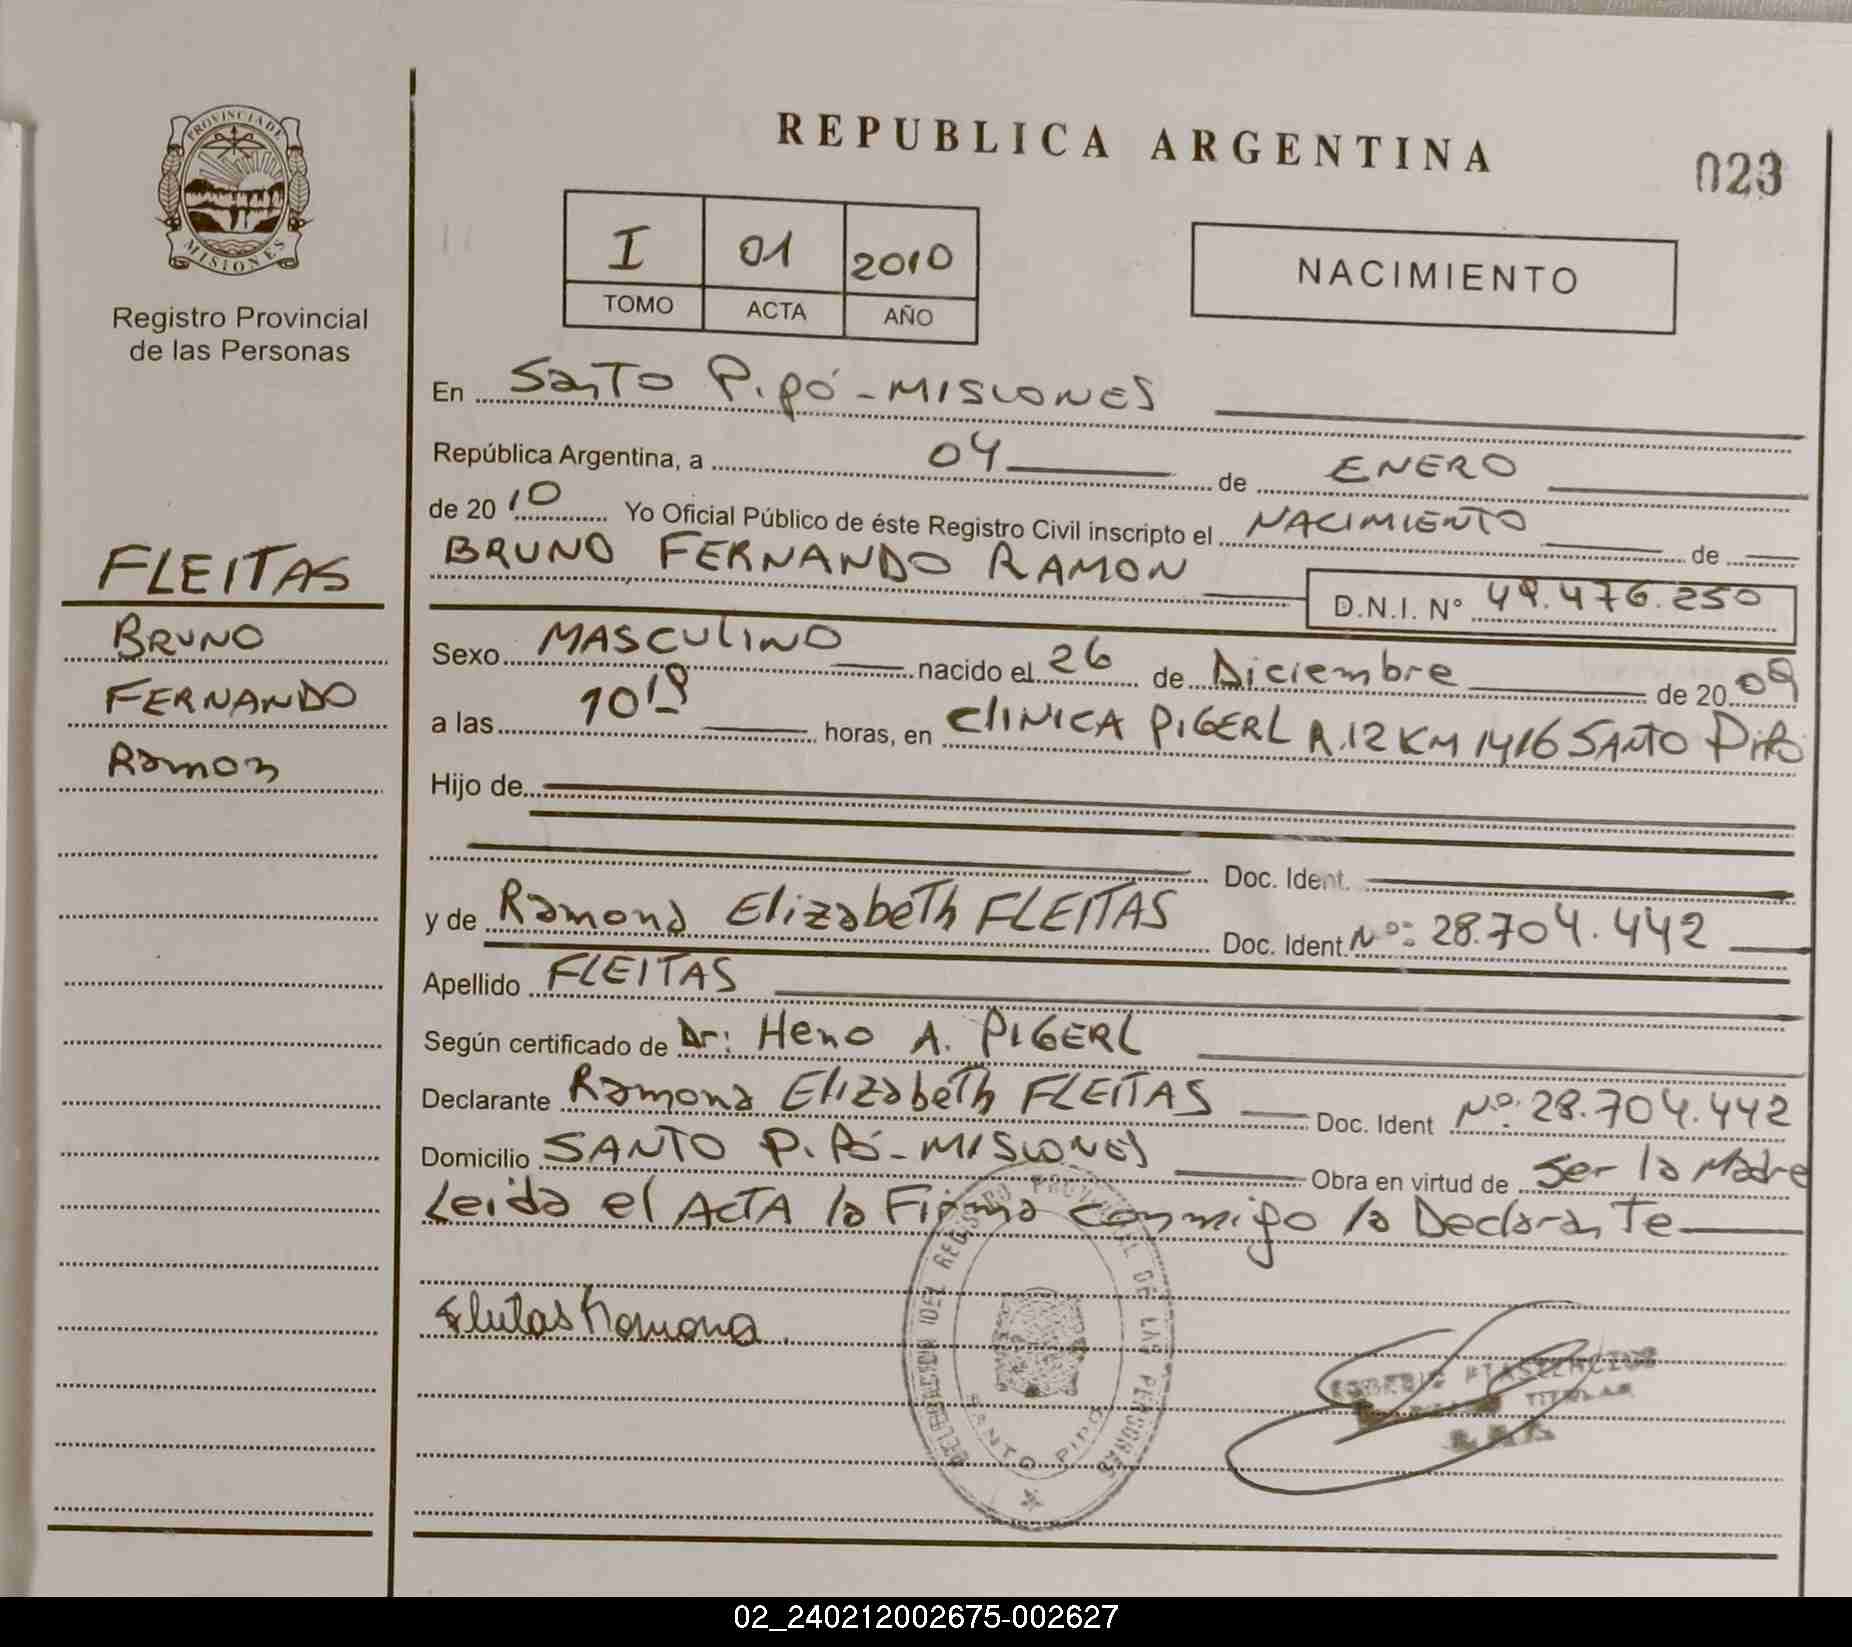 REPUBLICA ARGENTINA
023
PROVINCIA DE
MISIONES
Registro Provincial
de las Personas
I 01 2010
TOMO ACTA AÑO
NACIMIENTO
En Santo Pipó - MISIONES
República Argentina, a 04 de ENERO
de 2010 Yo Oficial Público de éste Registro Civil inscripto el NACIMIENTO de
BRUNO FERNANDO RAMON D.N.I. N° 49.476.250
FLEITAS
BRUNO
FERNANDO
Ramon
Sexo MASCULINO nacido el 26 de Diciembre de 2009
a las horas, en CLINICA PIGERL R.12 KM 1416 SANTO Pipó
Hijo de
Doc. Ident.
y de Ramona Elizabeth FLEITAS Doc. Ident. Nº: 28.704.442
Apellido FLEITAS
Según certificado de Dr: Heno A. PIGERL
Declarante Ramona Elizabeth FLEITAS Doc. Ident Nº: 28.704.442
Domicilio SANTO PiPó - MISIONES Obra en virtud de Ser la Madre
Leida el ACTA la Firma conmigo la Declarante
Fleitas Ramona
DELEGACION DEL REGISTRO PROVINCIAL DE LAS PERSONAS
SANTO PIPO
TITULAR
02_240212002675-002627